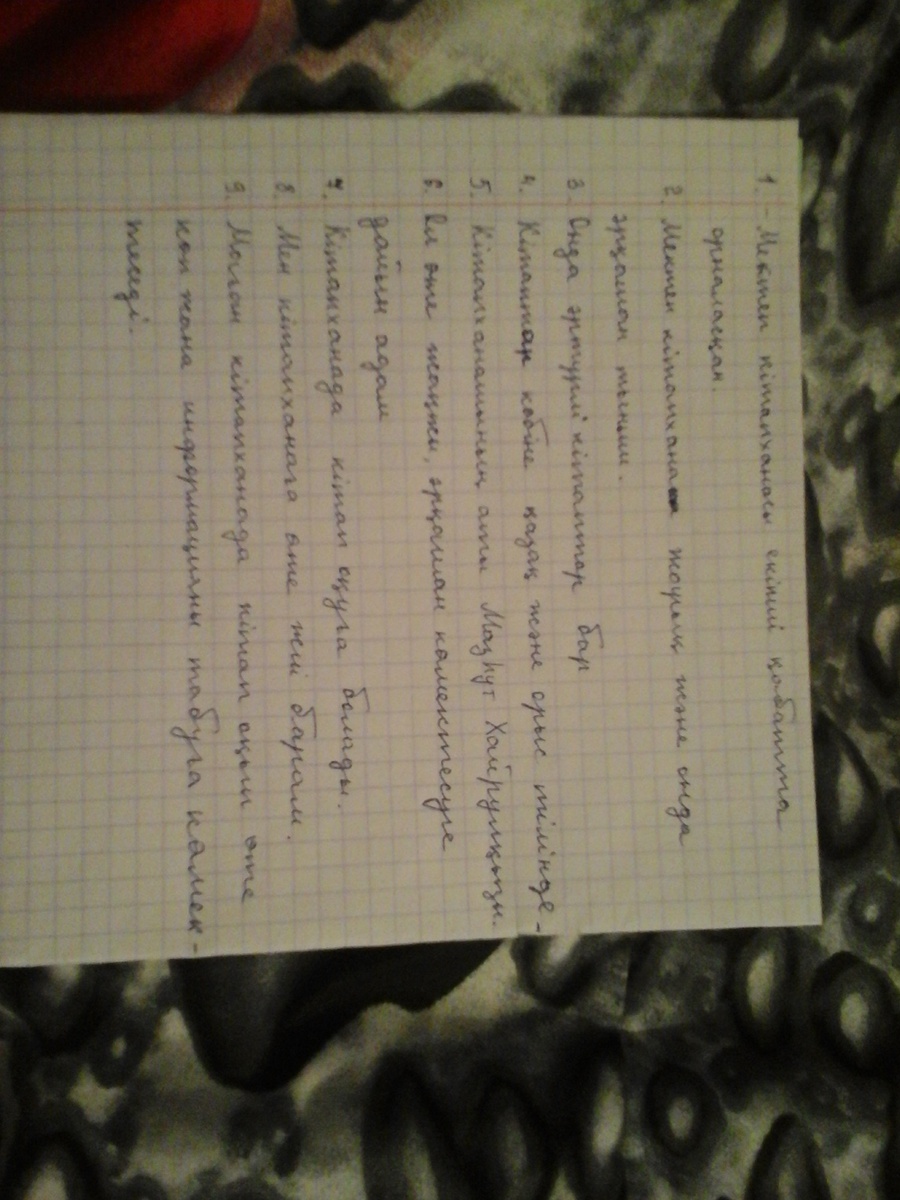 1. - Мектеп кітапханасы екінші қабатта
орналасқан.
2. Мектеп кітапхана жарық және онда
әрқашан тыныш.
3. Онда әртүрлі кітаптар бар
4. Кітаптар көбіне қазақ және орыс тілінде -
5. Кітапхананың аты Мазрут Хайруллқызы.
6. Ол өте жақсы, әрқашан көмектесуге
дайын адам
7. Кітапханада кітап оқуға болады.
8. Мен кітапханаға өте жиі барам.
9. Маған кітапханада кітап оқып өте
көп жаңа информацияны табуға көмек -
теседі.